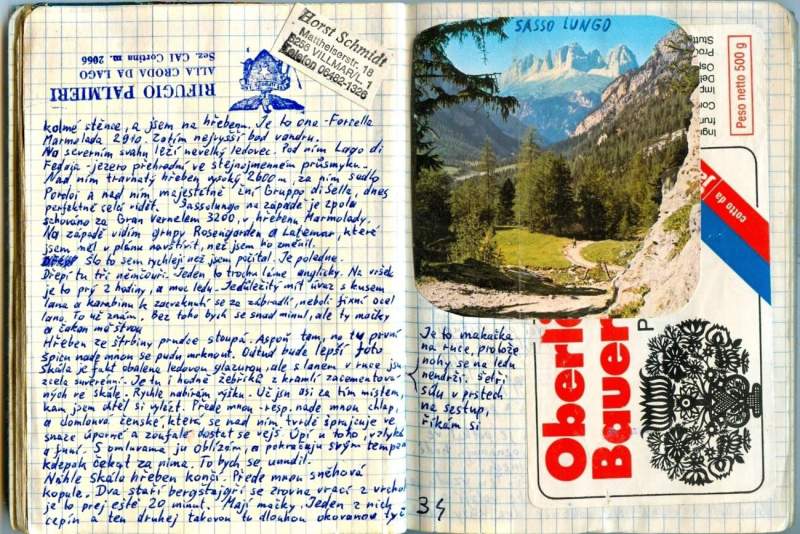 Horst Schmidt
Mattheiserstr. 18
6256 VILLMAR/L 1
Telefon 06482-1328
RIFUGIO PALMIERI
ALLA CRODA DA LAGO
Sez. CAI Cortina m. 2066
kolmé stěnce, a jsem na hřebenu. Je to ona - Forcella
Marmolada 2910. Zatím nejvyšší bod vandru.
Na severním svahu leží nevelký ledovec. Pod ním Lago di
Fedaja - jezero přehradní ve stejnojmenném průsmyku.
Nad ním travnatý hřeben vysoký 2600 m, za ním sedlo
Pordoi a nad ním majestátně ční Gruppo di Sella, dnes
perfektně celá vidět. Sassolungo na západě je zpola
schováno za Gran Vernelem 3200, v hřebenu Marmolady.
Na západě vidím grupy Rosengarden a Latemar, které
jsem měl v plánu navštívit, než jsem ho změnil.
Šlo to sem rychleji než jsem počítal. Je poledne.
Dřepí tu tři němčouři. Jeden to trochu láme anglicky. Na vršek
je to prý 2 hodiny, a moc ledu. Jedůležitý mít úvaz s kusem
lana a karabinu k zacvaknutí se za zábradlí, neboli fixní ocel
lano. To už znám. Bez toho bych se snad minul, ale ty mačky
a čakan mě štvou
Hřeben ze štrbiny prudce stoupá. Aspoň tam, na tu první
špicu nade mnou se pudu mrknout. Odtud bude lepší foto
Skála je fakt obalena ledovou glazurou, ale s lanem v ruce jsu
zcela suverénní. Je tu i hodně žebříků z kramlí zacementova
ných ve skále. Rychle nabírám výšku. Už jsu asi za tím místem,
kam jsem chtěl si vylézt. Přede mnou - resp. nade mnou chlap,
a domlouvá ženské, která se nad ním tvrdě šprajcuje ve
snaze úporně a zoufale dostat se vejš. Úpí u toho, vzlyká
a funí. S omluvama ju oblízám, a pokračuju svým tempem
kdepak čekat za nima. To bych se unudil.
Náhle skála hřeben končí. Přede mnou sněhová
kopule. Dva staří bergstajgři se zrovna vrací z vrcholu
je to prej ešte 20 minut. Mají mačky. Jeden z nich
cepín a ten druhej takovou tu dlouhou okovanou tyč
SASSO LUNGO
Je to makačka
na ruce, protože
nohy se na ledu
neudrží. Šetři
sílu v prstech
na sestup,
říkám si
34
Peso netto 500 g
cotto da
Oberl
Bauer